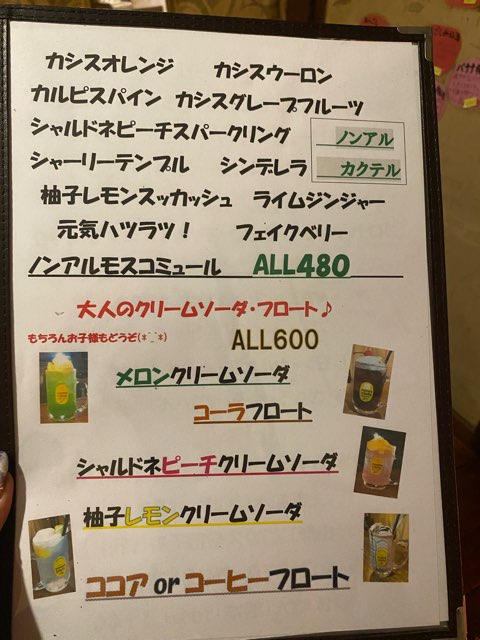 カシスオレンジ カシスウーロン
カルピスパイン カシスグレープフルーツ
シャルドネピーチスパークリング ノンアル
シャーリーテンプル シンデレラ カクテル
柚子レモンスッカッシュ ライムジンジャー
元気ハツラツ！ フェイクベリー
ノンアルモスコミュール ALL480
大人のクリームソーダ・フロート♪
もちろんお子様もどうぞ(*^_^*) ALL600
メロンクリームソーダ
コーラフロート
シャルドネピーチクリームソーダ
柚子レモンクリームソーダ
ココア or コーヒーフロート